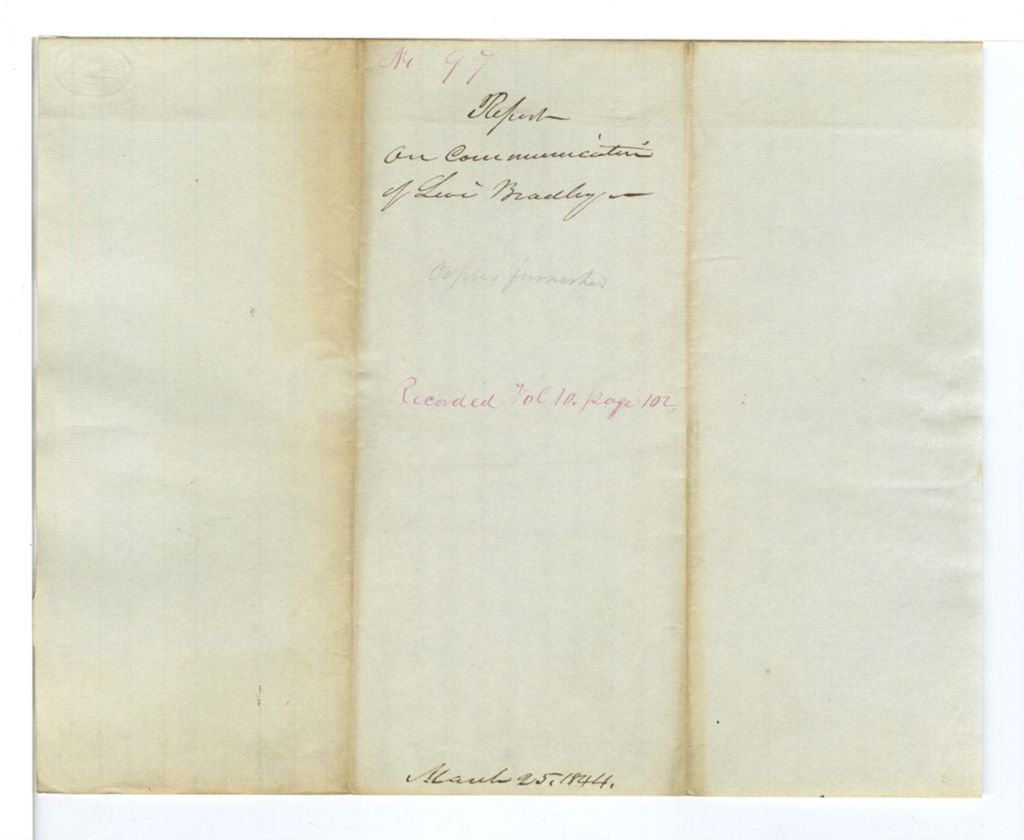 No 97
Report
On Communication
of Levi Bradley —
Copies furnished
Recorded Vol 10. page 102,
March 25, 1844.